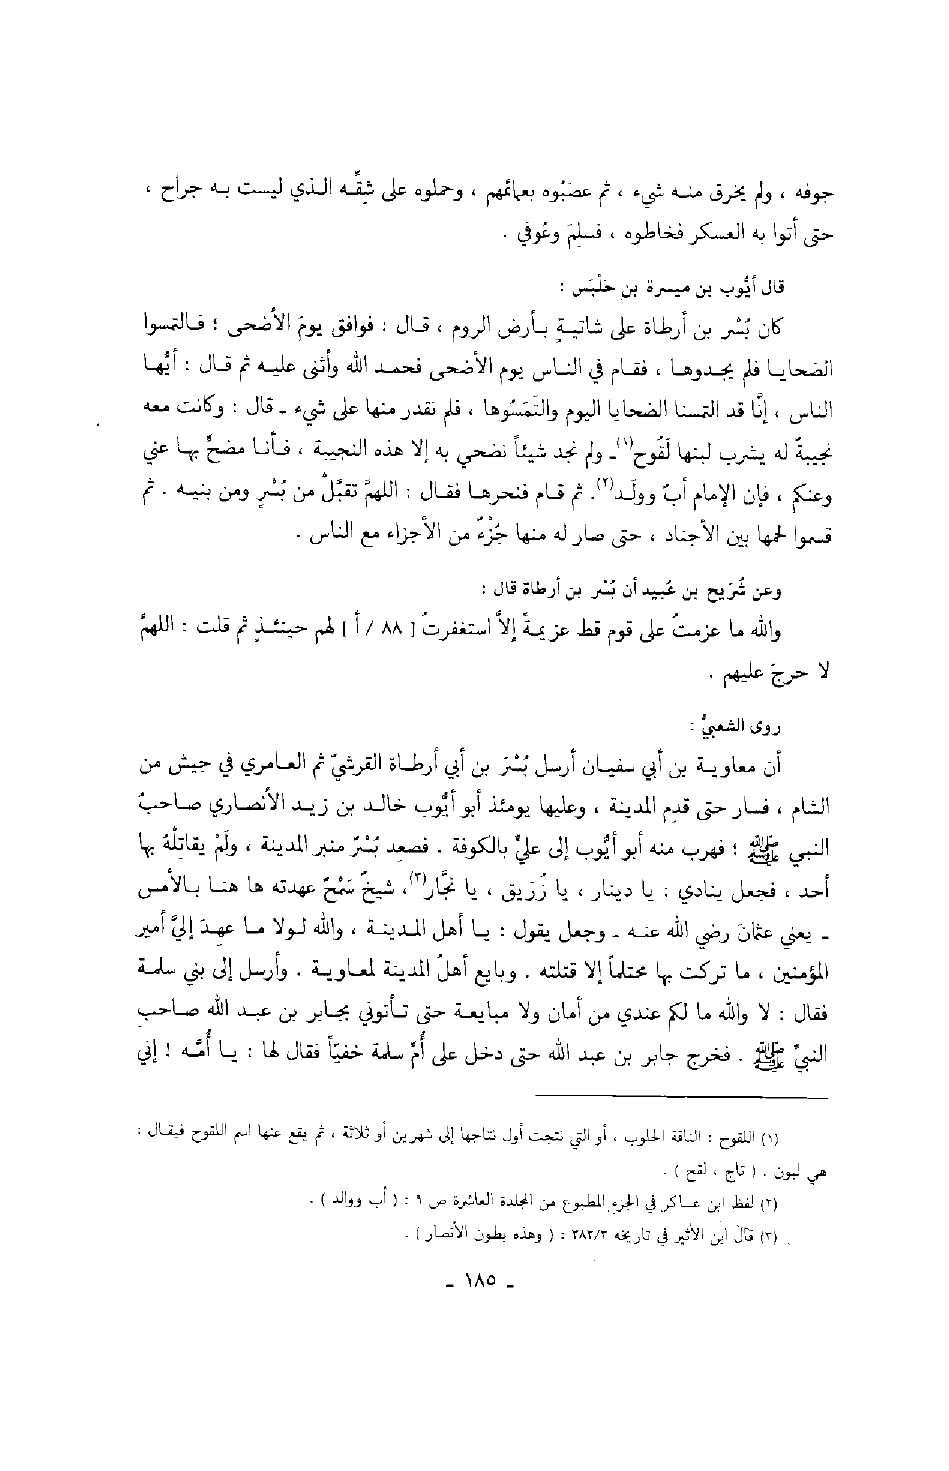 جوفه ، ولم يخرق منه شيء ، ثم عصَبُوه بعمائمهم ، وحملوه على شقِّه الذي ليست به جراح ،
حتى أتوا به العسكر فخاطوه ، فسلِمَ وعُوفي .
قال أيُّوب بن ميسرة بن حَلْبَس :
كان بُسْر بن أرطاة على شاتيةٍ بأرض الروم ، قال : فوافق يومَ الأضحى ؛ فالتمسوا
الضحايا فلم يجدوها ، فقام في الناس يوم الأضحى فحمد الله وأثنى عليه ثم قال : أيُّها
الناس ، إنَّا قد التمسنا الضحايا اليوم والتَمَسُوها ، فلم نقدر منها على شيء ـ قال : وكانت معه
نجيبةٌ له يشرب لبنها لَقُوح(١) ـ ولم نجد شيئاً نضحي به إلا هذه النجيبة ، فأنا مضحٍّ بها عني
وعنكم ، فإن الإمام أبٌ وولَد(٢). ثم قام فنحرها فقال : اللهمَّ تقبَّلْ من بُسْرٍ ومن بنيه . ثم
قسموا لحمها بين الأجناد ، حتى صار له منها جُزْءٌ من الأجزاء مع الناس .
وعن شُرَيح بن عُبيد أن بُسْر بن أرطاة قال :
والله ما عزمتُ على قوم قط عزيمةً إلاَّ استغفرتُ [ ٨٨ / أ ] لهم حينئذٍ ثم قلت : اللهمَّ
لا حرجَ عليهم .
روى الشعبيُّ :
أن معاوية بن أبي سفيان أرسل بُسْرَ بن أبي أرطاة القرشيّ ثم العامري في جيش من
الشام ، فسار حتى قدِم المدينة ، وعليها يومئذ أبو أيُّوب خالد بن زيد الأنصاري صاحبُ
النبي ﷺ ؛ فهرب منه أبو أيُّوب إلى عليٍّ بالكوفة . فصعِد بُسْرٌ منبر المدينة ، ولَمْ يقاتِلْهُ بها
أحد ، فجعل ينادي : يا دينار ، يا زُريق ، يا نجَّار(٣)، شيخٌ سَمْحٌ عهدته ها هنا بالأمس
ـ يعني عثمانَ رضي الله عنه ـ وجعل يقول : يا أهل المدينة ، والله لولا ما عهِدَ إليَّ أمير
المؤمنين ، ما تركت بها محتلماً إلا قتلته . وبايع أهلُ المدينة لمعاوية . وأرسل إلى بني سلمة
فقال : لا والله ما لكم عندي من أمان ولا مبايعة حتى تأتوني بجابر بن عبد الله صاحبِ
النبيِّ ﷺ . فخرج جابر بن عبد الله حتى دخل على أُمِّ سلمة خفيّاً فقال لها : يا أُمَّه ! إني
(١) اللقوح : الناقة الحلوب ، أو التي نتجت أول نتاجها إلى شهرين أو ثلاثة ، ثم يقع عنها اسم اللقوح فيقال :
هي لبون . ( تاج ، لقح ) .
(٢) لفظ ابن عساكر في الجزء المطبوع من المجلدة العاشرة ص ٩ : ( أب ووالد ) .
(٣) قال ابن الأثير في تاريخه ٣٨٣/٣ : ( وهذه بطون الأنصار ) .
ـ ١٨٥ ـ